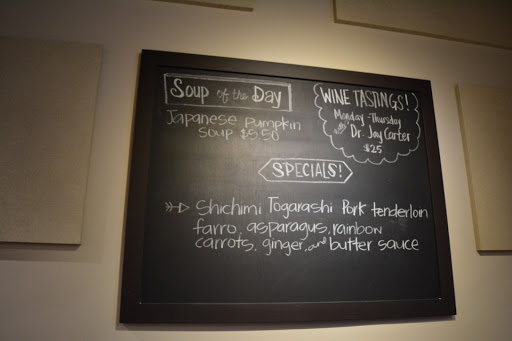 Soup of the Day
Japanese Pumpkin
Soup $5.50
WINE TASTINGS!
Monday - Thursday
Dr. Jay Carter
$25
SPECIALS!
Shichimi Togarashi Pork tenderloin
farro, asparagus, rainbow
carrots, ginger, and butter sauce